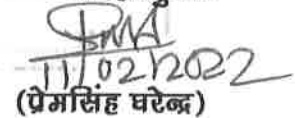 11/02/2022
(प्रेमसिंह घरेन्द्र)